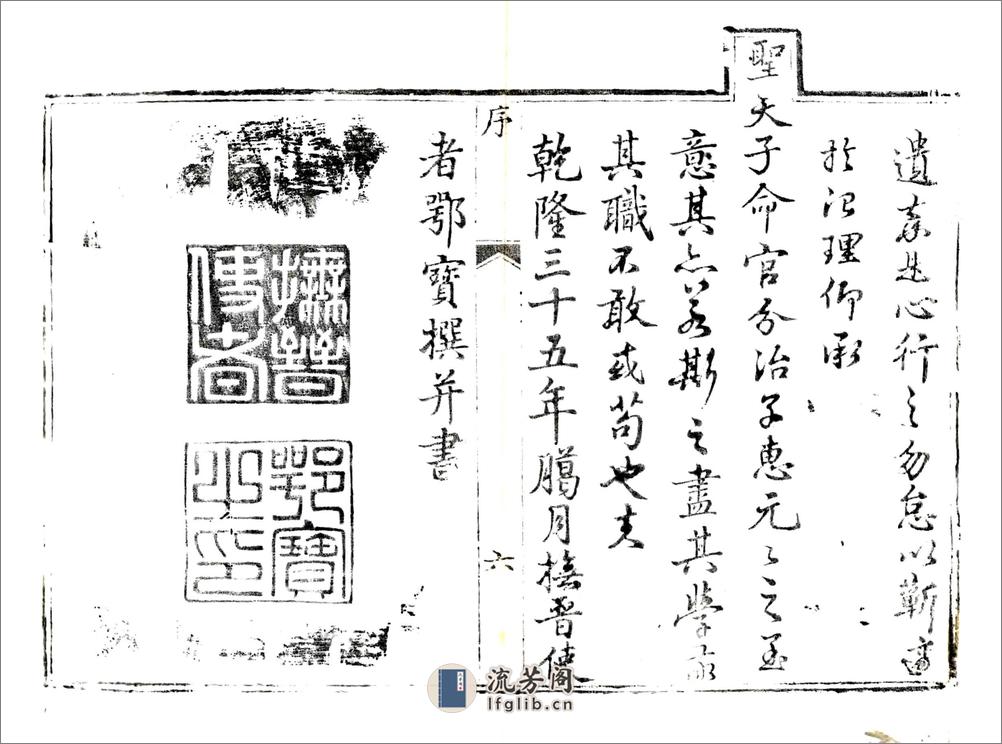 遺棄是心行之勿怠以蘄適
於治理仰承
聖天子命官分治子惠元々之至
意其亦若斯之盡其學求
其職不敢或苟也夫
乾隆三十五年臈月撫晉使
者鄂寶撰并書
序
六
撫晉
使者
鄂寶
之印
流芳阁
lfglib.cn